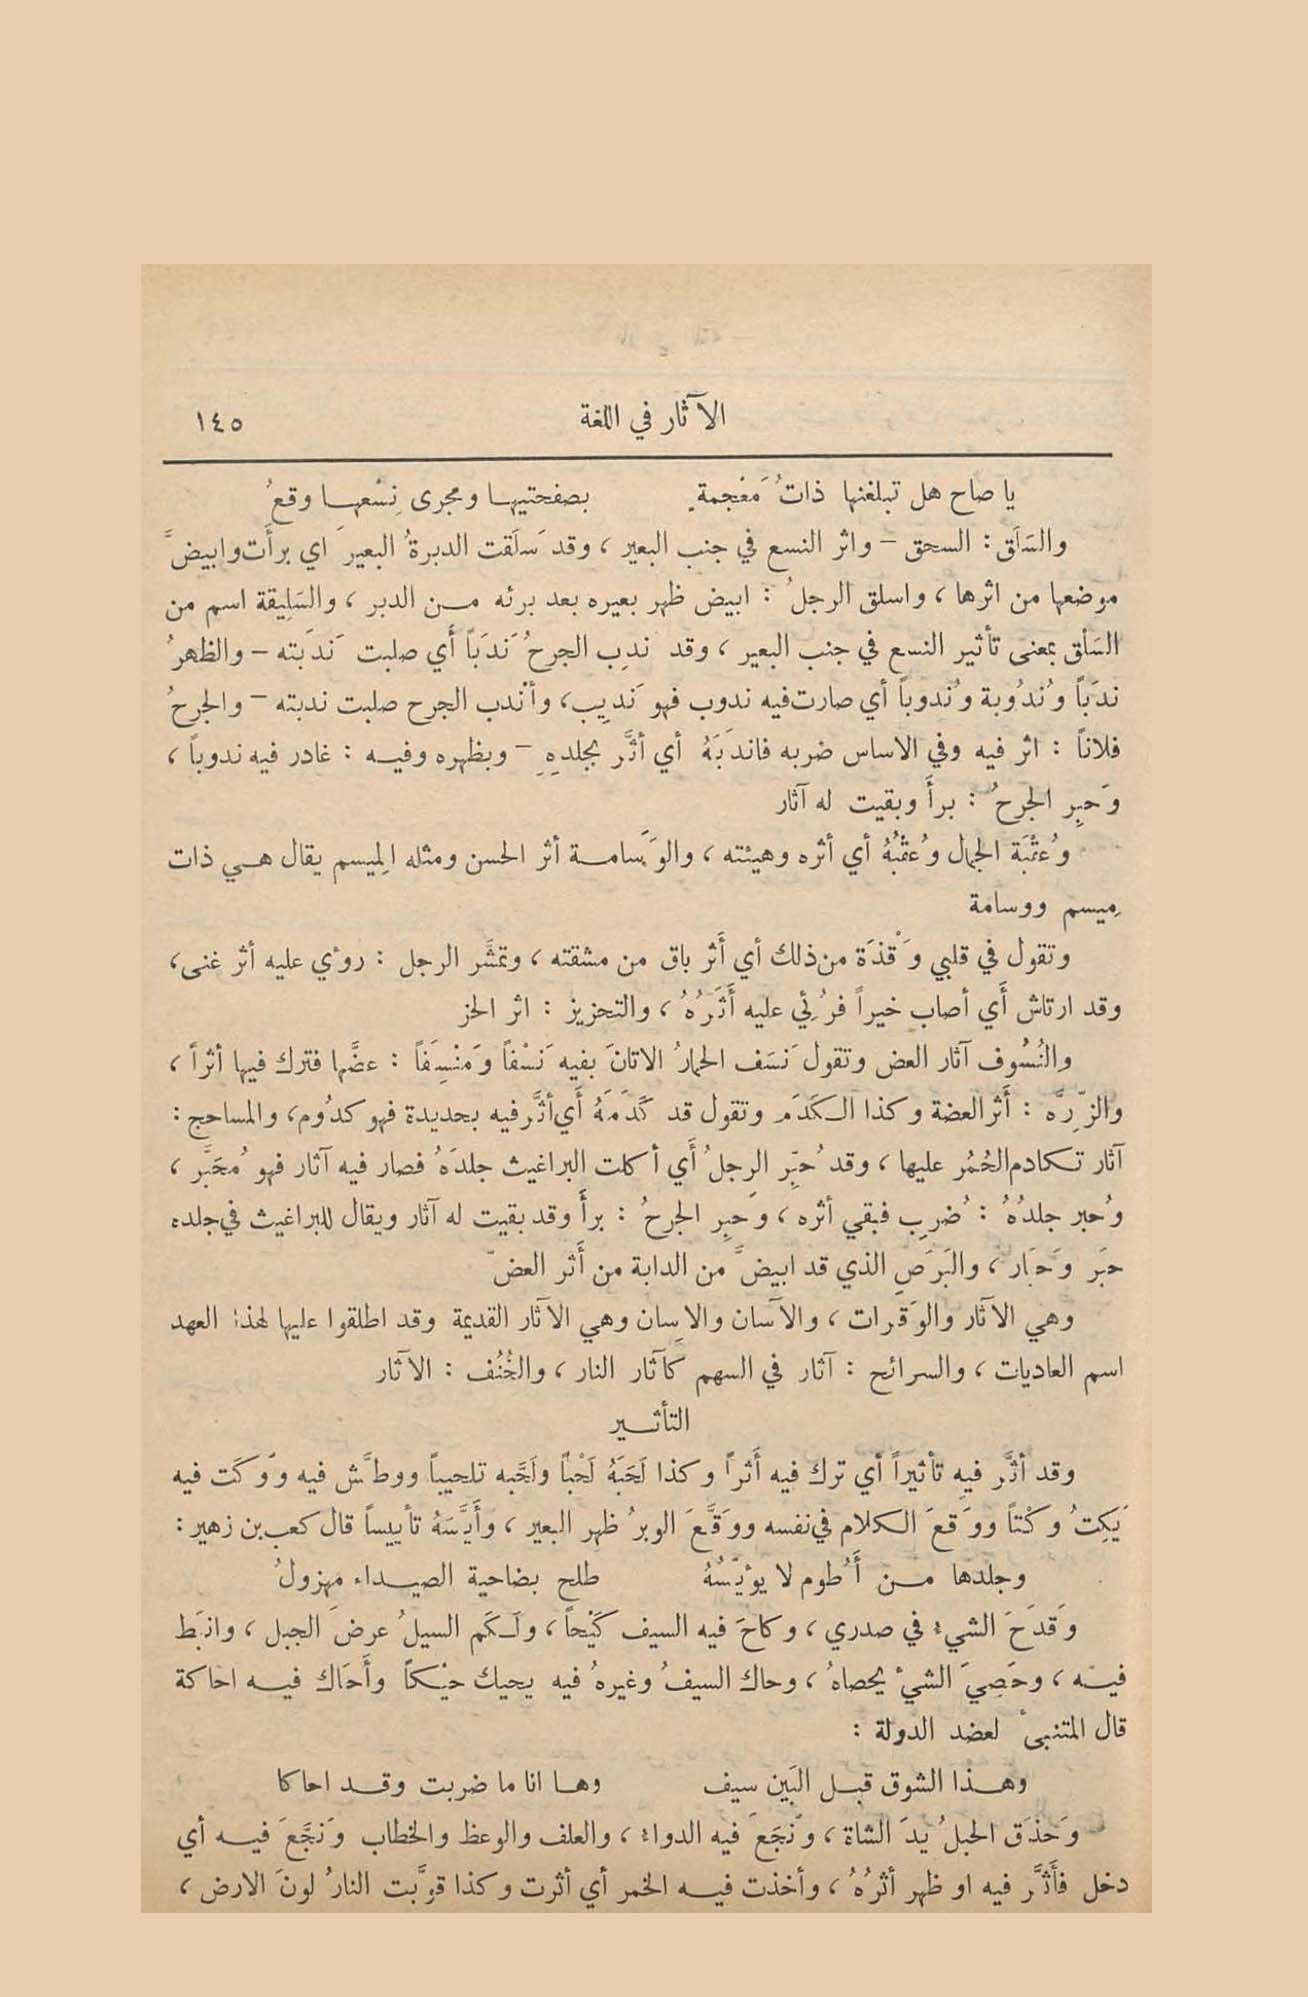 الآثار في اللغة ١٤٥
يا صاح هل تبلغنها ذاتُ مَعْجمةٍ بصفحتيها ومجرى نِسْعها وقعُ
والسَلَق : السحق – واثر النسع في جنب البعير ، وقد سَلَقت الدبرةُ البعيرَ اي برأَت وابيضَّ
موضعها من اثرها ، واسلق الرجلُ : ابيض ظهر بعيره بعد برئه من الدبر ، والسَلِيقة اسم من
السَلْق بمعنى تأثير النسع في جنب البعير ، وقد ندِب الجرحُ نَدَباً أَي صلبت نَدَبته – والظهرُ
ندَباً ونُدُوبة ونُدوباً أي صارت فيه ندوب فهو نَدِيب ، وأنْدب الجرح صلبت ندبته – والجرحُ
فلاناً : اثر فيه وفي الاساس ضربه فاندَبَهُ أي أثَّر بجلدِهِ – وبظهره وفيه : غادر فيه ندوباً ،
وحَبِر الجرحُ : برأَ وبقيت له آثار
وعُقْبَة الجمال وعُقْبُهُ أي أثره وهيئته ، والوَسَامة أثر الحسن ومثله المِيسم يقال هي ذات
مِيسم ووسامة
وتقول في قلبي وَقْذَة من ذلك أي أَثر باق من مشقته ، وتمشَّر الرجل : رؤي عليه أثر غنى ،
وقد ارتاش أَي أصاب خيراً فرُئِي عليه أَثَرُهُ ، والتحزيز : اثر الحز
والنُسُوف آثار العض وتقول نَسَف الحمارُ الاتانَ بفيه نَسْفاً ومَنْسِفَاً : عضَّها فترك فيها أثراً ،
والزِّرَّه : أَثر العضة وكذا الكَدَم وتقول قد كَدَمَهُ أَي أثَّر فيه بحديدة فهو كدُوم ، والمساحج :
آثار تكادم الحُمُر عليها ، وقد حُبِّر الرجلُ أَي أكلت البراغيث جلدَهُ فصار فيه آثار فهو مُحَبَّر ،
وحُبر جلدُهُ : ضُرِب فبقي أثره ، وحَبِر الجرحُ : برأَ وقد بقيت له آثار ويقال للبراغيث في جلده
حبَر وحَبَار ، والبَرَص الذي قد ابيضَّ من الدابة من أَثر العضّ
وهي الآثار والوَقرات ، والآسان والاِسان وهي الآثار القديمة وقد اطلقوا عليها لهذا العهد
اسم العاديات ، والسرائح : آثار في السهم كآثار النار ، والخُنُف : الآثار
التأثير
وقد أثَّر فيه تأثيراً أي ترك فيه أَثراً وكذا لَحَبَهُ لَحْباً ولَحَّبه تلحيباً ووطَّش فيه ووَكَت فيه
يَكِتُ وكْتاً ووَقعَ الكلام في نفسه ووَقَّعَ الوبرُ ظهر البعير ، وأَيَّسَهُ تأييساً قال كعب بن زهير :
وجلدها من أَطُوم لا يؤيّسُهُ طلح بضاحية الصيداء مهزولُ
وقَدَحَ الشيء في صدري ، وكاحَ فيه السيف كَيْحاً ، ولكَم السيلُ عرضَ الجبل ، وانبَط
فيه ، وحَصِيَ الشيءُ يحصاهُ ، وحاك السيفُ وغيرهُ فيه يحيك حيْكاً وأَحَاك فيه احاكة
قال المتنبىء لعضد الدولة :
وهذا الشوق قبل البَين سيف وها انا ما ضربت وقد احاكا
وحَذَق الحبلُ يدَ الشاة ، ونَجَعَ فيه الدواء ، والعلف والوعظ والخطاب ونَجَّعَ فيه أي
دخل فأَثَّر فيه او ظهر أثرُهُ ، وأخذت فيه الخمر أي أثرت وكذا قوَّبت النارُ لونَ الارض ،